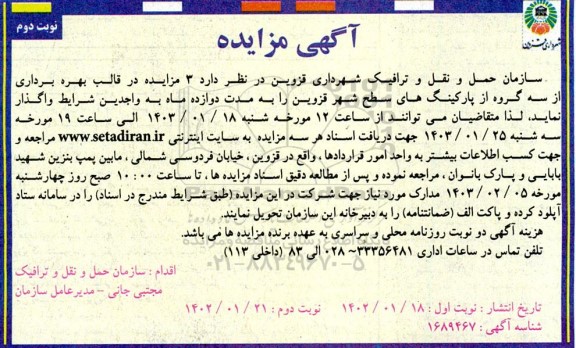 نوبت دوم
شهرداری قزوین
آگهی مزایده
سازمان حمل و نقل و ترافیک شهرداری قزوین در نظر دارد ۳ مزایده در قالب بهره برداری
از سه گروه از پارکینگ های سطح شهر قزوین را به مدت دوازده ماه به واجدین شرایط واگذار
نماید. لذا متقاضیان می توانند از ساعت ۱۲ مورخه شنبه ۱۸ / ۰۱ / ۱۴۰۳ الی ساعت ۱۹ مورخه
سه شنبه ۲۵ / ۰۱ / ۱۴۰۳ جهت دریافت اسناد هر سه مزایده به سایت اینترنتی www.setadiran.ir مراجعه و
جهت کسب اطلاعات بیشتر به واحد امور قراردادها، واقع در قزوین ، خیابان فردوسی شمالی ، مابین پمپ بنزین شهید
بابایی و پارک بانوان ، مراجعه نموده و پس از مطالعه دقیق اسناد مزایده ها ، تا ساعت ۱۰:۰۰ صبح روز چهارشنبه
مورخه ۰۵ / ۰۲ / ۱۴۰۳ مدارک مورد نیاز جهت شرکت در این مزایده (طبق شرایط مندرج در اسناد) را در سامانه ستاد
آپلود کرده و پاکت الف (ضمانتنامه) را به دبیرخانه این سازمان تحویل نمایند.
هزینه آگهی دو نوبت روزنامه محلی و سراسری به عهده برنده مزایده ها می باشد.
تلفن تماس در ساعات اداری ۳۳۳۵۶۴۸۱- ۰۲۸ الی ۸۳ (داخلی ۱۱۳)
۰۲۱-۸۸۳۴۹۶۷۰-۵
اقدام : سازمان حمل و نقل و ترافیک
مجتبی جانی - مدیرعامل سازمان
تاریخ انتشار : نوبت اول : ۱۸ / ۰۱ / ۱۴۰۲ نوبت دوم : ۲۱ / ۰۱ / ۱۴۰۲
شناسه آگهی : ۱۶۸۹۴۶۷